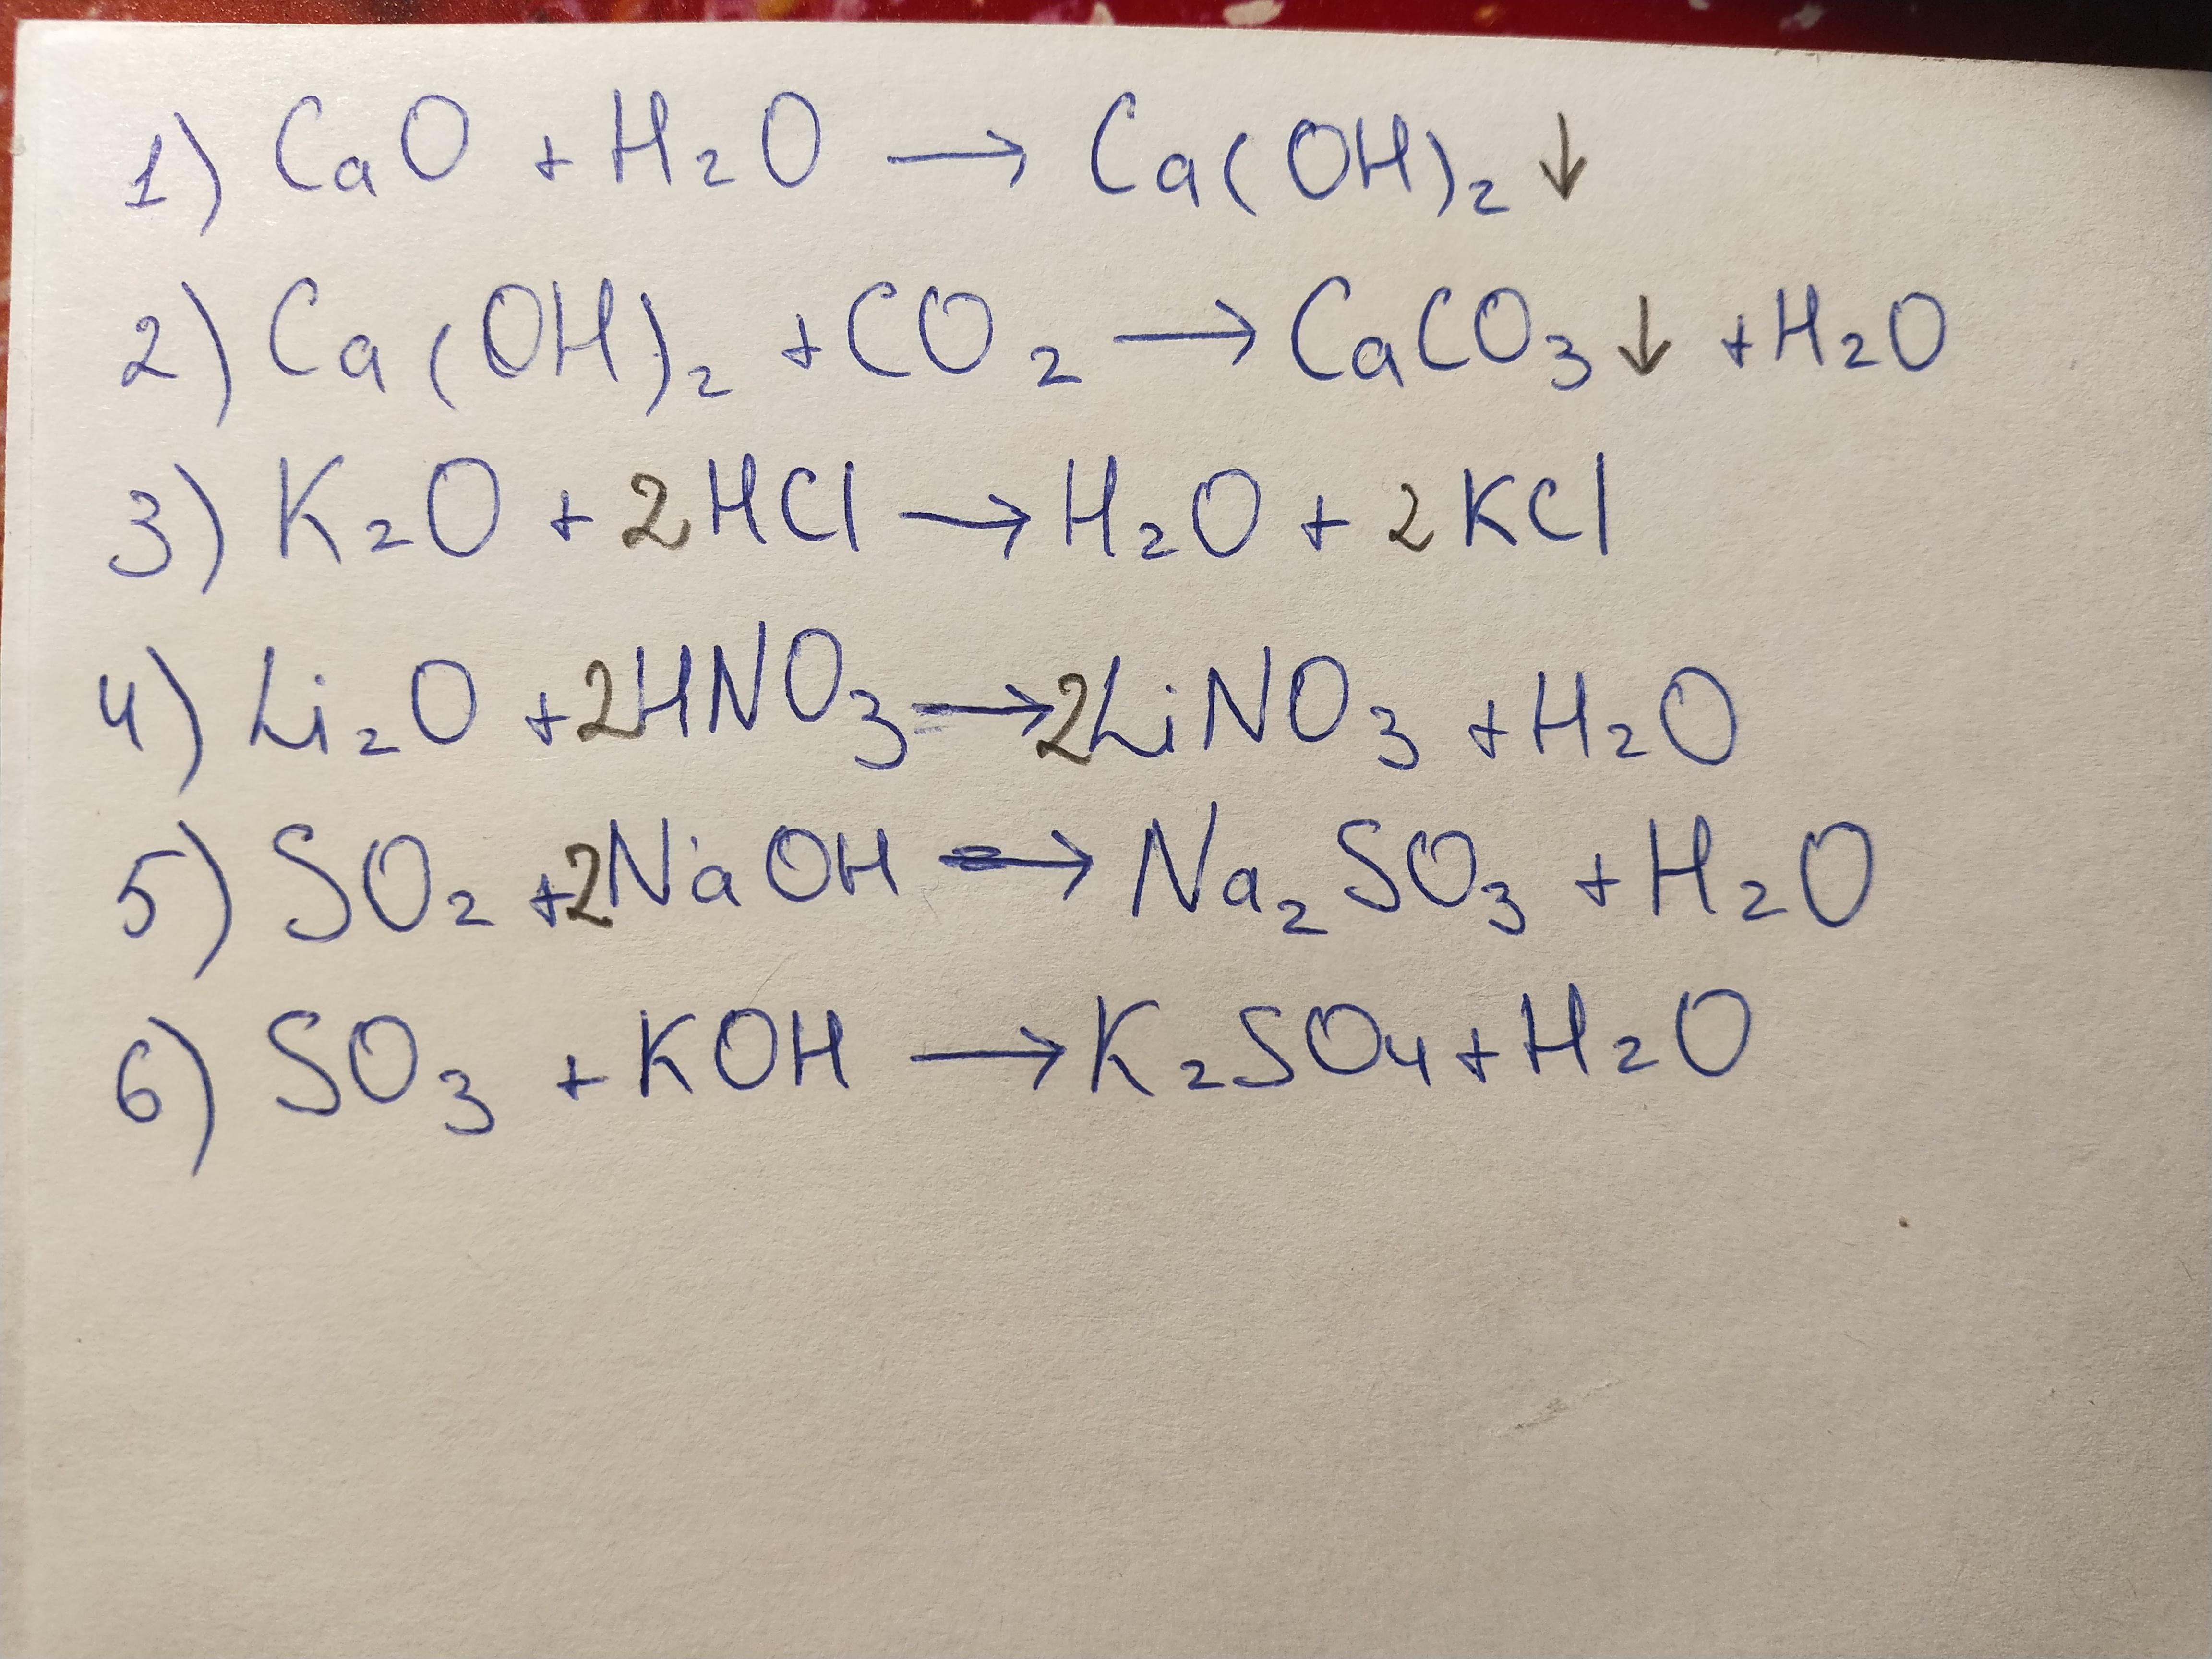 1) CaO + H₂O → Ca(OH)₂ ↓
2) Ca(OH)₂ + CO₂ → CaCO₃ ↓ + H₂O
3) K₂O + 2HCl → H₂O + 2KCl
4) Li₂O + 2HNO₃ → 2LiNO₃ + H₂O
5) SO₂ + 2NaOH → Na₂SO₃ + H₂O
6) SO₃ + KOH → K₂SO₄ + H₂O